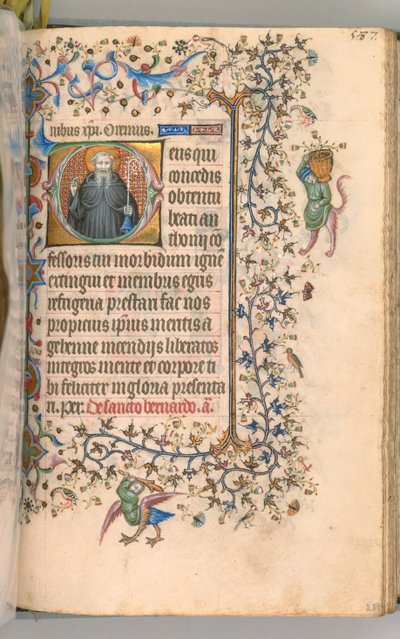 537.
nibus xpi. Oremus.
Deus qui
concedis
obtentu
beati an
thonij co
fessoris tui morbidum igne
extingui et membris egris
refrigeria prestari fac nos
propicius ipius meritis a
gehenne incendijs liberatos
integros mente et corpore ti
bi feliciter in gloria presenta
ri. Per. De sancto bernardo. a.